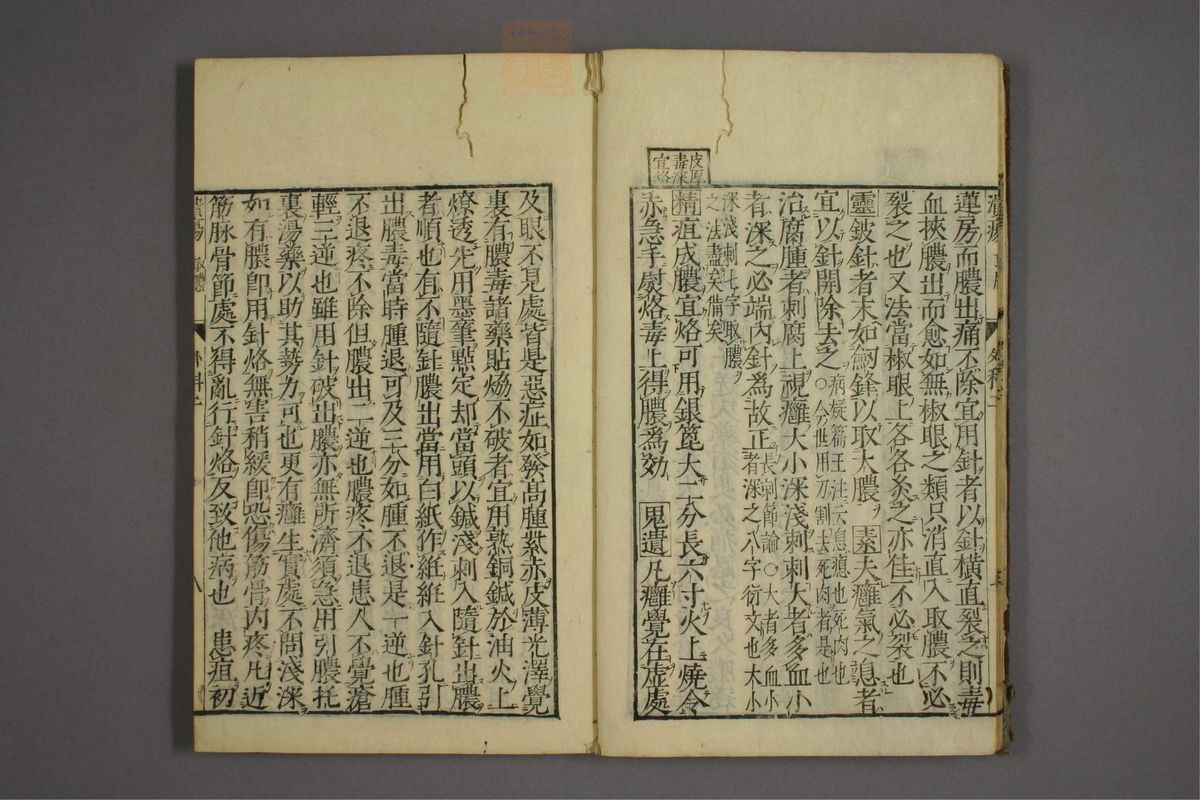 蓮房而膿出痛不除宜用針者以針橫直裂之則毒
血挾膿出而愈如無椒眼之類只消直入取膿不必
裂之也又法當椒眼上各各灸之亦佳不必裂也
靈鈹針者末如劒鋒以取大膿 素夫癰氣之息者
宜以針開除去之○病能篇王注云息瘜也死肉也
今世用刀割去死肉者是也
治腐腫者刺腐上視癰大小深淺刺刺大者多血小
者深之必端內針爲故正長刺節論○大者多血小
者深之八字衍文也大小
深淺刺七字取膿
之法盡矣備矣
皮厚
毒深
宜烙
精疽成膿宜烙可用銀篦大二分長六寸火上燒令
赤急手熨烙毒上得膿爲効 鬼遺凡癰覺在虛處
及眼不見處皆是惡症如發高腫紫赤皮薄光澤覺
裏有膿毒諸藥貼煸不破者宜用熟銅鍼於油火上
燎透先用墨筆點定却當頭以鍼淺刺入隨針出膿
者順也有不隨針膿出當用白紙作絍絍入針孔引
出膿毒當時腫退可及三分如腫不退是一逆也腫
不退疼不除但膿出二逆也膿疼不退患人不覺瘡
輕三逆也雖用針破出膿亦無所濟須急用引膿托
裏湯藥以助其勢力可也更有癰生實處不問淺深
如有膿卽用針烙無害稍緩卽恐傷筋骨肉疼凡近
筋脉骨節處不得亂行針烙反致他病也 患疽初
外科二
八